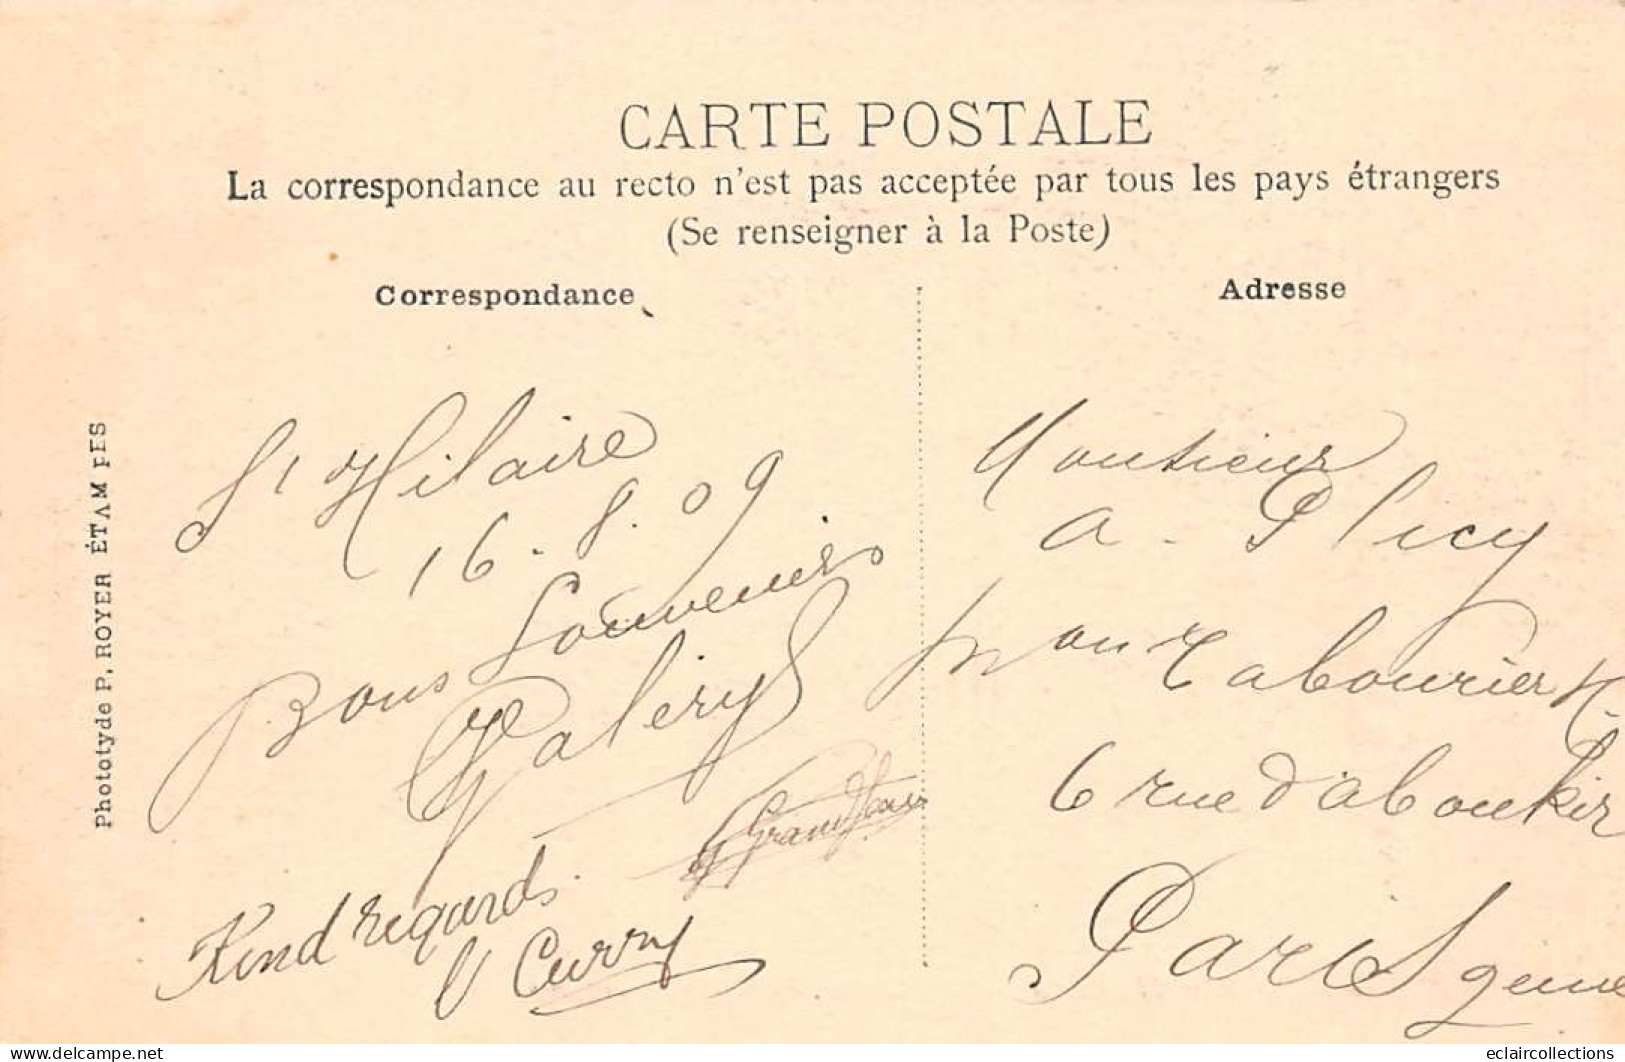 CARTE POSTALE
La correspondance au recto n'est pas acceptée par tous les pays étrangers
(Se renseigner à la Poste)
Correspondance
Adresse
Phototypie P. ROYER ÉTAMPES
St Hilaire
16. 8. 09
Bons Souvenirs
Valéry
Kind regards
V Curry
Monsieur
A. Plicy
Mon Tabourier
6 rue d'aboukir
Paris 2eme
eclaircollections